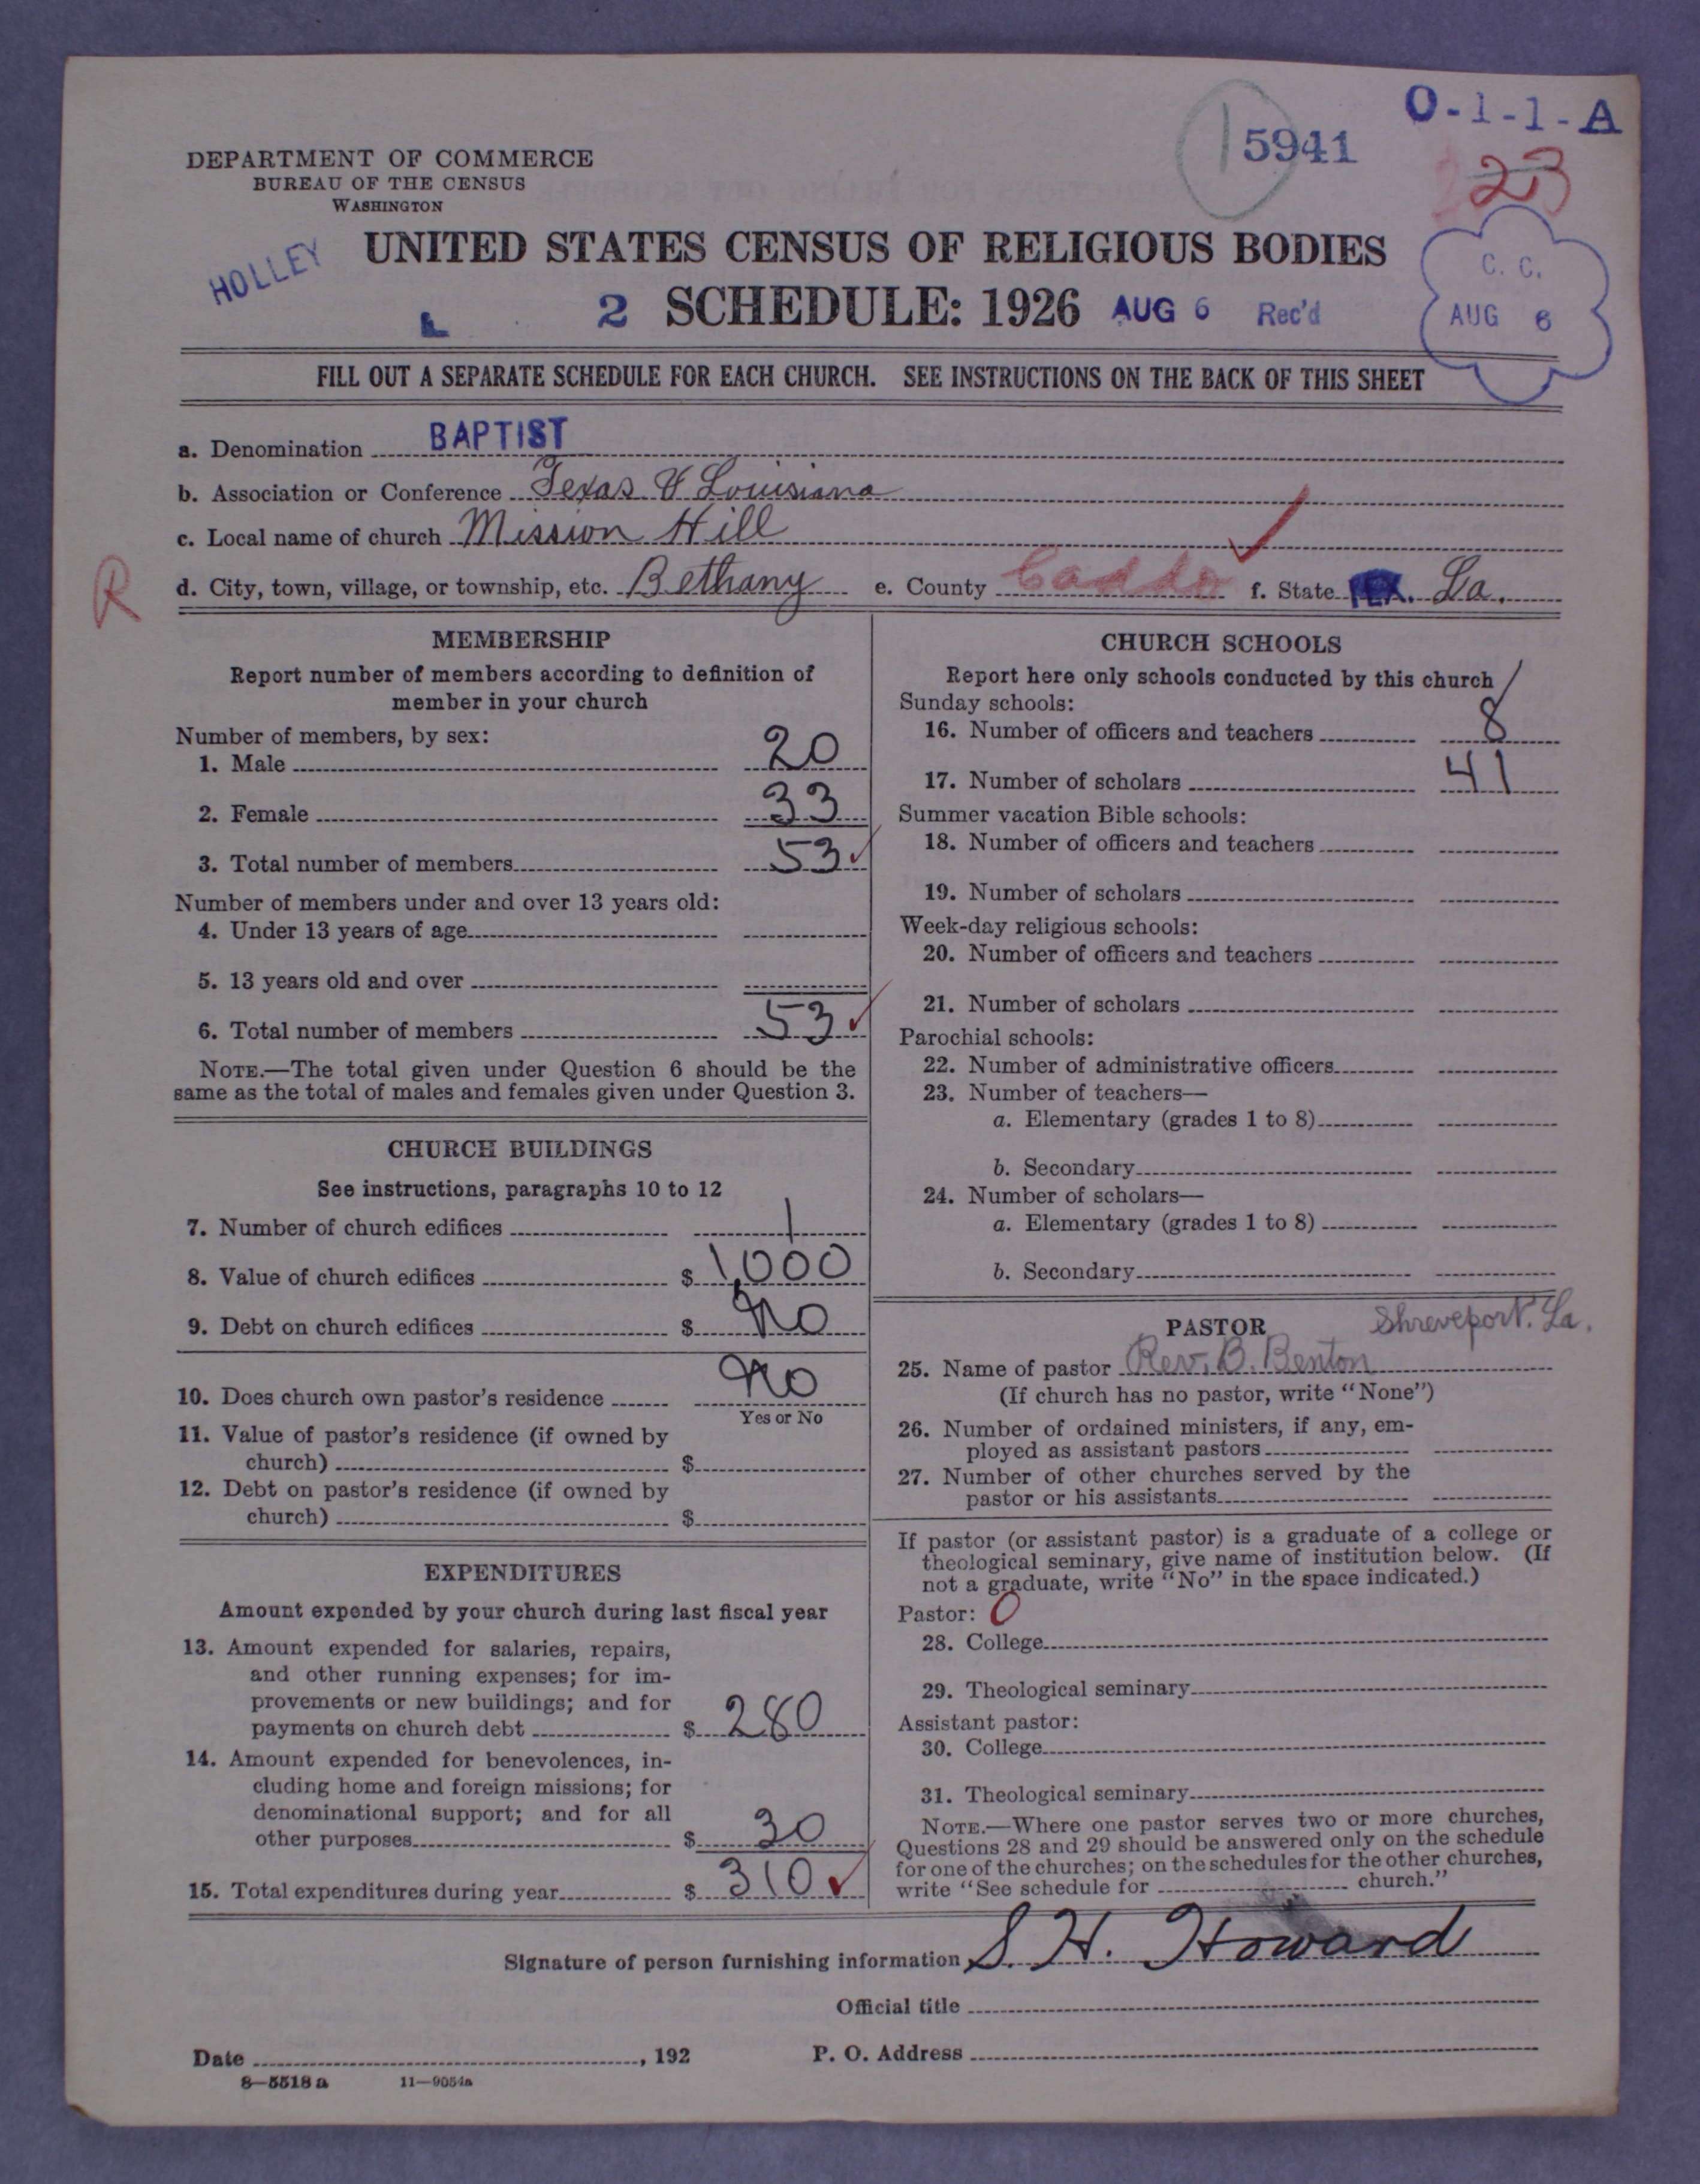 O-1-1-A
1 5941
23
DEPARTMENT OF COMMERCE
BUREAU OF THE CENSUS
WASHINGTON
HOLLEY
UNITED STATES CENSUS OF RELIGIOUS BODIES
2 SCHEDULE: 1926 AUG 6 Rec'd
C. C.
AUG 6
FILL OUT A SEPARATE SCHEDULE FOR EACH CHURCH. SEE INSTRUCTIONS ON THE BACK OF THIS SHEET
a. Denomination BAPTIST
b. Association or Conference Texas & Louisiana
c. Local name of church Mission Hill
R
d. City, town, village, or township, etc. Bethany e. County Caddo f. State TEX. La.
MEMBERSHIP
Report number of members according to definition of
member in your church
Number of members, by sex:
1. Male 20
2. Female 33
3. Total number of members 53
Number of members under and over 13 years old:
4. Under 13 years of age
5. 13 years old and over
6. Total number of members 53
NOTE.—The total given under Question 6 should be the
same as the total of males and females given under Question 3.
CHURCH BUILDINGS
See instructions, paragraphs 10 to 12
7. Number of church edifices 1
8. Value of church edifices $ 1,000
9. Debt on church edifices $ No
10. Does church own pastor's residence No
Yes or No
11. Value of pastor's residence (if owned by
church) $
12. Debt on pastor's residence (if owned by
church) $
EXPENDITURES
Amount expended by your church during last fiscal year
13. Amount expended for salaries, repairs,
and other running expenses; for im-
provements or new buildings; and for
payments on church debt $ 280
14. Amount expended for benevolences, in-
cluding home and foreign missions; for
denominational support; and for all
other purposes $ 30
15. Total expenditures during year $ 310
CHURCH SCHOOLS
Report here only schools conducted by this church
Sunday schools:
16. Number of officers and teachers 8
17. Number of scholars 41
Summer vacation Bible schools:
18. Number of officers and teachers
19. Number of scholars
Week-day religious schools:
20. Number of officers and teachers
21. Number of scholars
Parochial schools:
22. Number of administrative officers
23. Number of teachers—
a. Elementary (grades 1 to 8)
b. Secondary
24. Number of scholars—
a. Elementary (grades 1 to 8)
b. Secondary
PASTOR Shreveport. La.
25. Name of pastor Rev. B. Benton
(If church has no pastor, write "None")
26. Number of ordained ministers, if any, em-
ployed as assistant pastors
27. Number of other churches served by the
pastor or his assistants
If pastor (or assistant pastor) is a graduate of a college or
theological seminary, give name of institution below. (If
not a graduate, write "No" in the space indicated.)
Pastor: 0
28. College
29. Theological seminary
Assistant pastor:
30. College
31. Theological seminary
NOTE.—Where one pastor serves two or more churches,
Questions 28 and 29 should be answered only on the schedule
for one of the churches; on the schedules for the other churches,
write "See schedule for church."
Signature of person furnishing information S. H. Howard
Official title
Date , 192 P. O. Address
8—5518 a 11—9054a